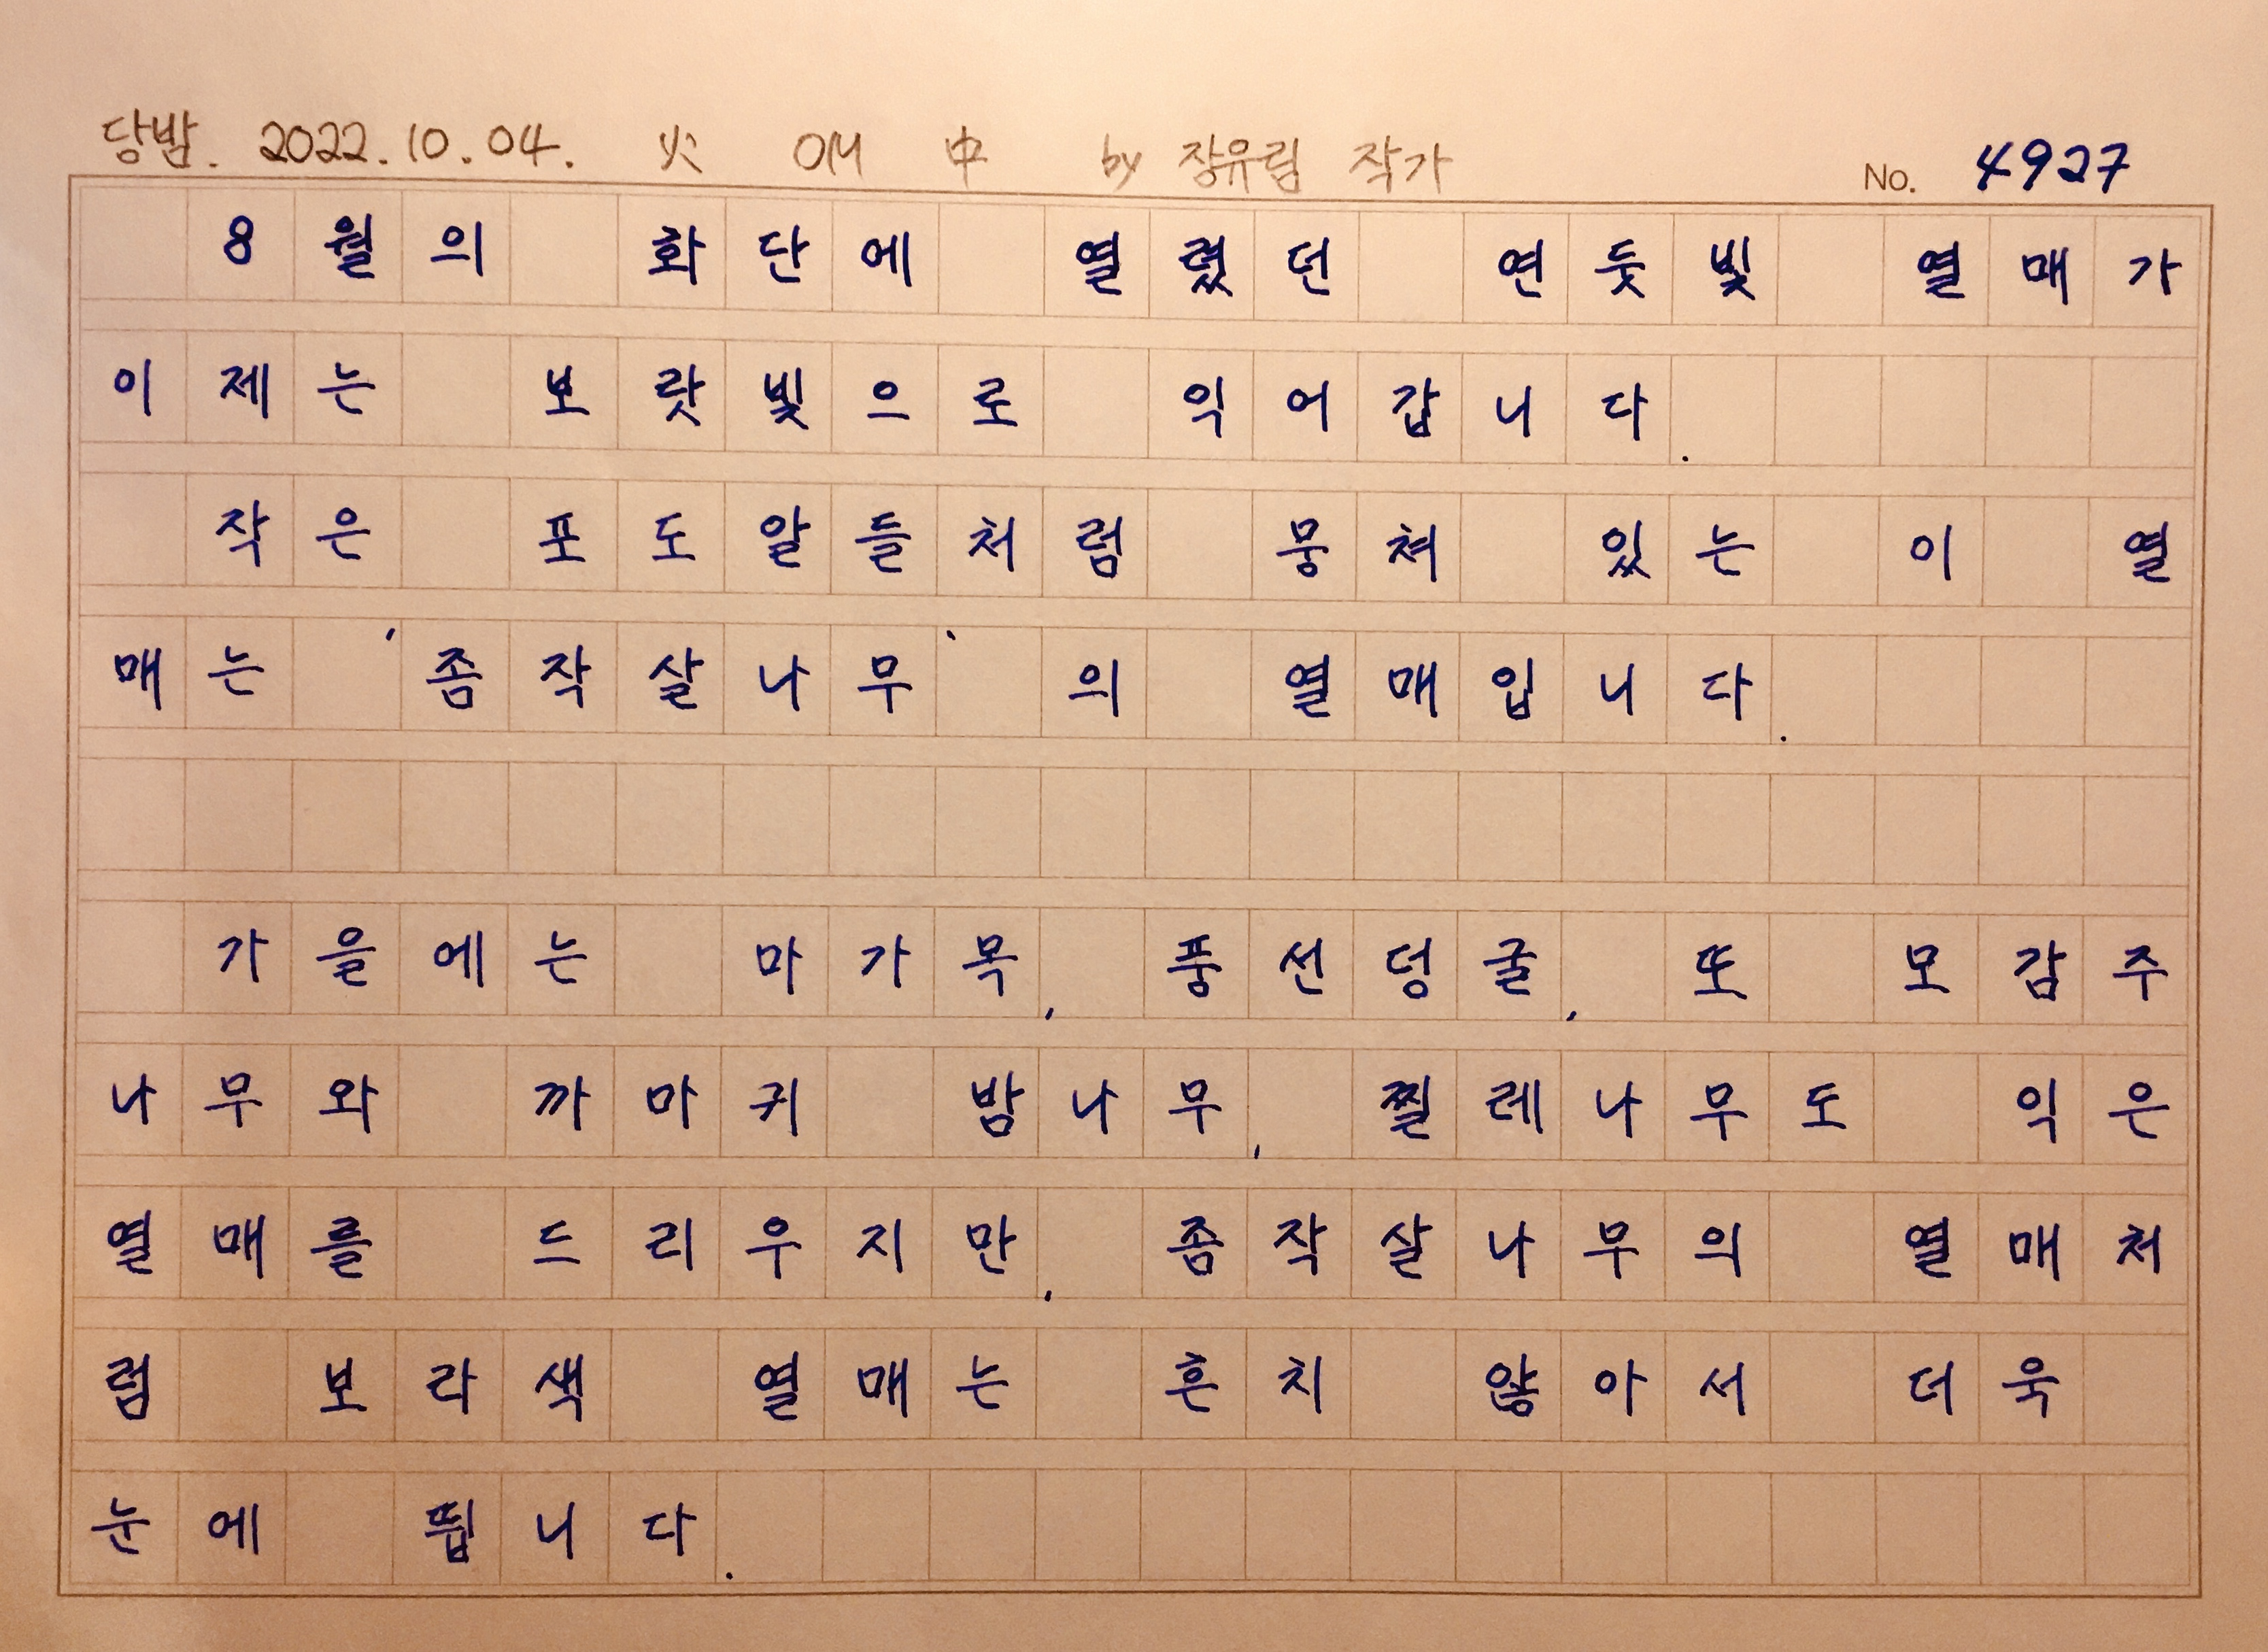 당밤. 2022.10.04. 火 OM 中 by 장유림 작가 No. 4927
8월의 화단에 열렸던 연둣빛 열매가
이제는 보랏빛으로 익어갑니다.
작은 포도알들처럼 뭉쳐 있는 이 열
매는 '좀작살나무'의 열매입니다.
가을에는 마가목, 풍선덩굴, 또 모감주
나무와 까마귀 밥나무, 찔레나무도 익은
열매를 드리우지만, 좀작살나무의 열매처
럼 보라색 열매는 흔치 않아서 더욱
눈에 띕니다.